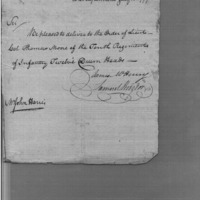 Sir
Be pleased to deliver to the Order of Lieut
Col Thomas Stone of the Fourth Regiment
of Infantry Twelve Queen Heads —
James McHenry
Samuel Hodgdon
Mr John Harris